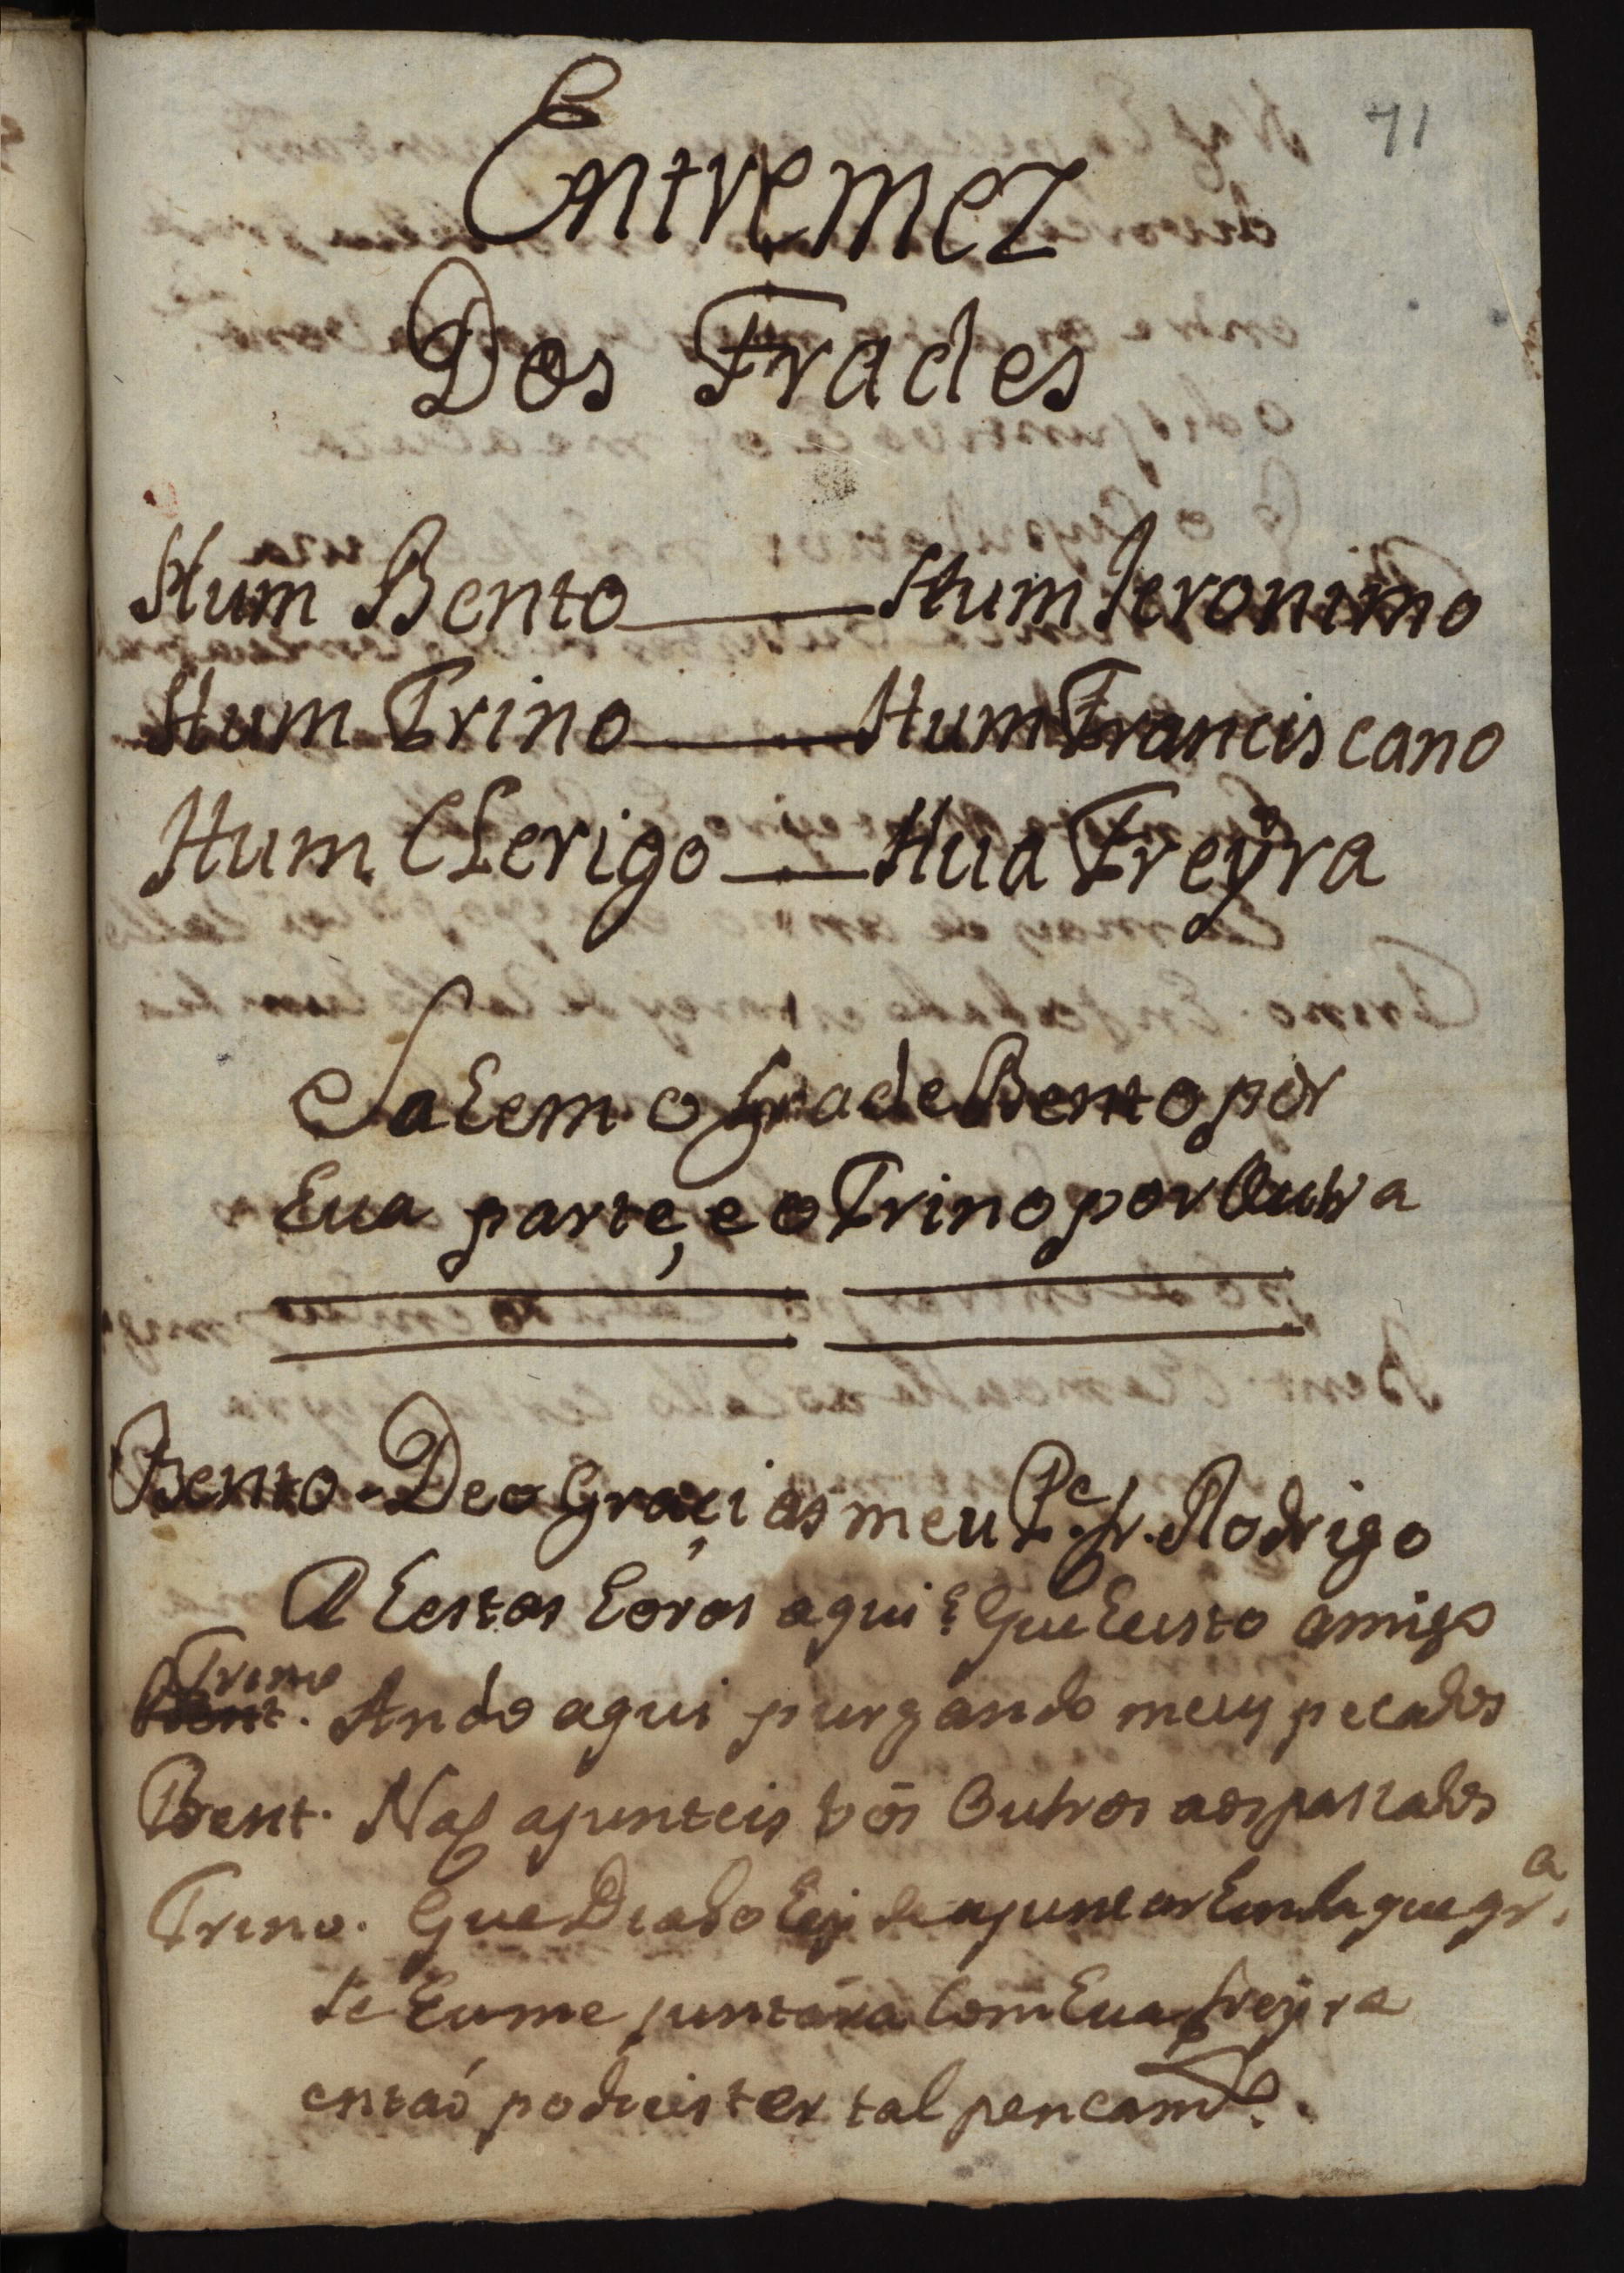 71
Entremez
Dos Frades
Hum Bento Hum Jeronimo
Hum Trino Hum Franciscano
Hum Clerigo Hua Freyra
Sahem o frade Bento por
hua parte, e o Trino por Outra
Bento. Deo Graçias meu P.e fr. Rodrigo
A hestas horas aqui? Que he isto amigo
Trino
Bent. Ando aqui purgando meus pecados
Bent. Naõ ajunteis vós Outros aos passados
Trino. Que Diabo hei de ajuntar
se eu me juntára Com hua freyra
entaõ podieis ter tal pencam.to.